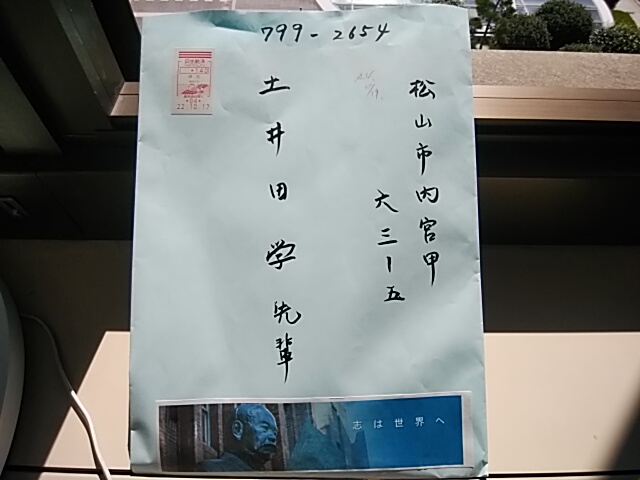 799-2654
松山市内宮甲
六三一五
土井田学先輩
志は世界へ
22.10.17